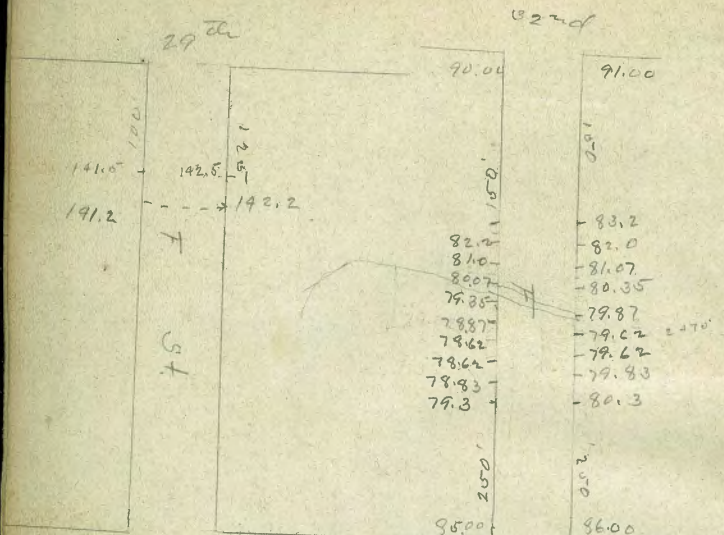 29th
32nd
90.00
91.00
100'
141.5
142.5
191.2
142.2
150'
150'
F
St
82.2
81.0
80.07
79.35
78.87
78.62
78.62
78.83
79.3
83.2
82.0
81.07
80.35
79.87
79.62
79.62
79.83
80.3
F
250'
250'
95.00
96.00